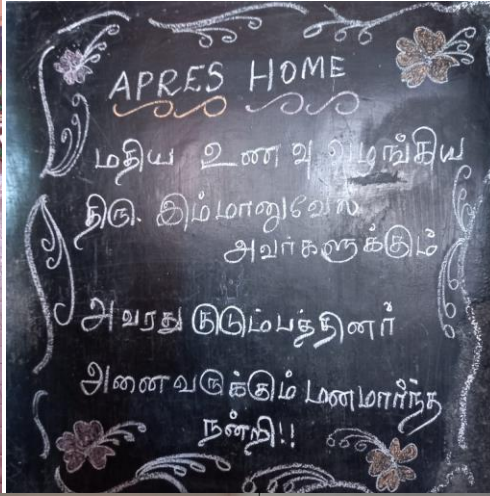 APRES HOME
மதிய உணவு வழங்கிய
திரு. இம்மானுவேல்
அவர்களுக்கும்
அவரது குடும்பத்தினர்
அனைவருக்கும் மனமார்ந்த
நன்றி!!